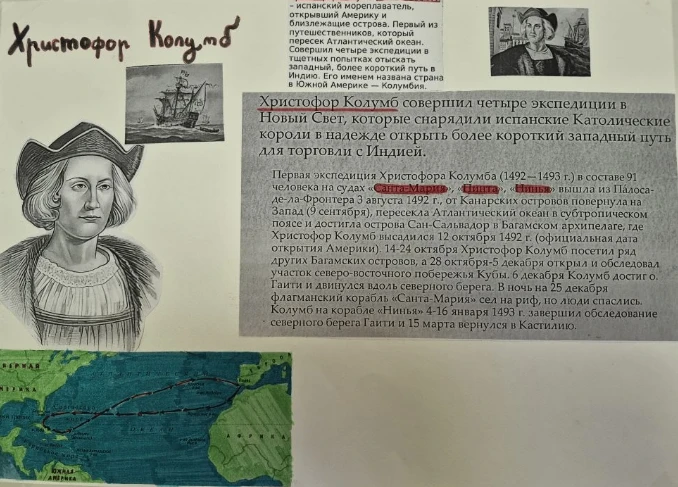 Христофор Колумб
– испанский мореплаватель,
открывший Америку и
близлежащие острова. Первый из
путешественников, который
пересек Атлантический океан.
Совершил четыре экспедиции в
тщетных попытках отыскать
западный, более короткий путь в
Индию. Его именем названа страна
в Южной Америке — Колумбия.
Христофор Колумб совершил четыре экспедиции в
Новый Свет, которые снарядили испанские Католические
короли в надежде открыть более короткий западный путь
для торговли с Индией.
Первая экспедиция Христофора Колумба (1492—1493 г.) в составе 91
человека на судах «Санта-Мария», «Пинта», «Нинья» вышла из Палоса-
де-ла-Фронтера 3 августа 1492 г., от Канарских островов повернула на
Запад (9 сентября), пересекла Атлантический океан в субтропическом
поясе и достигла острова Сан-Сальвадор в Багамском архипелаге, где
Христофор Колумб высадился 12 октября 1492 г. (официальная дата
открытия Америки). 14-24 октября Христофор Колумб посетил ряд
других Багамских островов, а 28 октября-5 декабря открыл и обследовал
участок северо-восточного побережья Кубы. 6 декабря Колумб достиг о.
Гаити и двинулся вдоль северного берега. В ночь на 25 декабря
флагманский корабль «Санта-Мария» сел на риф, но люди спаслись.
Колумб на корабле «Нинья» 4-16 января 1493 г. завершил обследование
северного берега Гаити и 15 марта вернулся в Кастилию.
АФРИКА
ЮЖНАЯ
АМЕРИКА